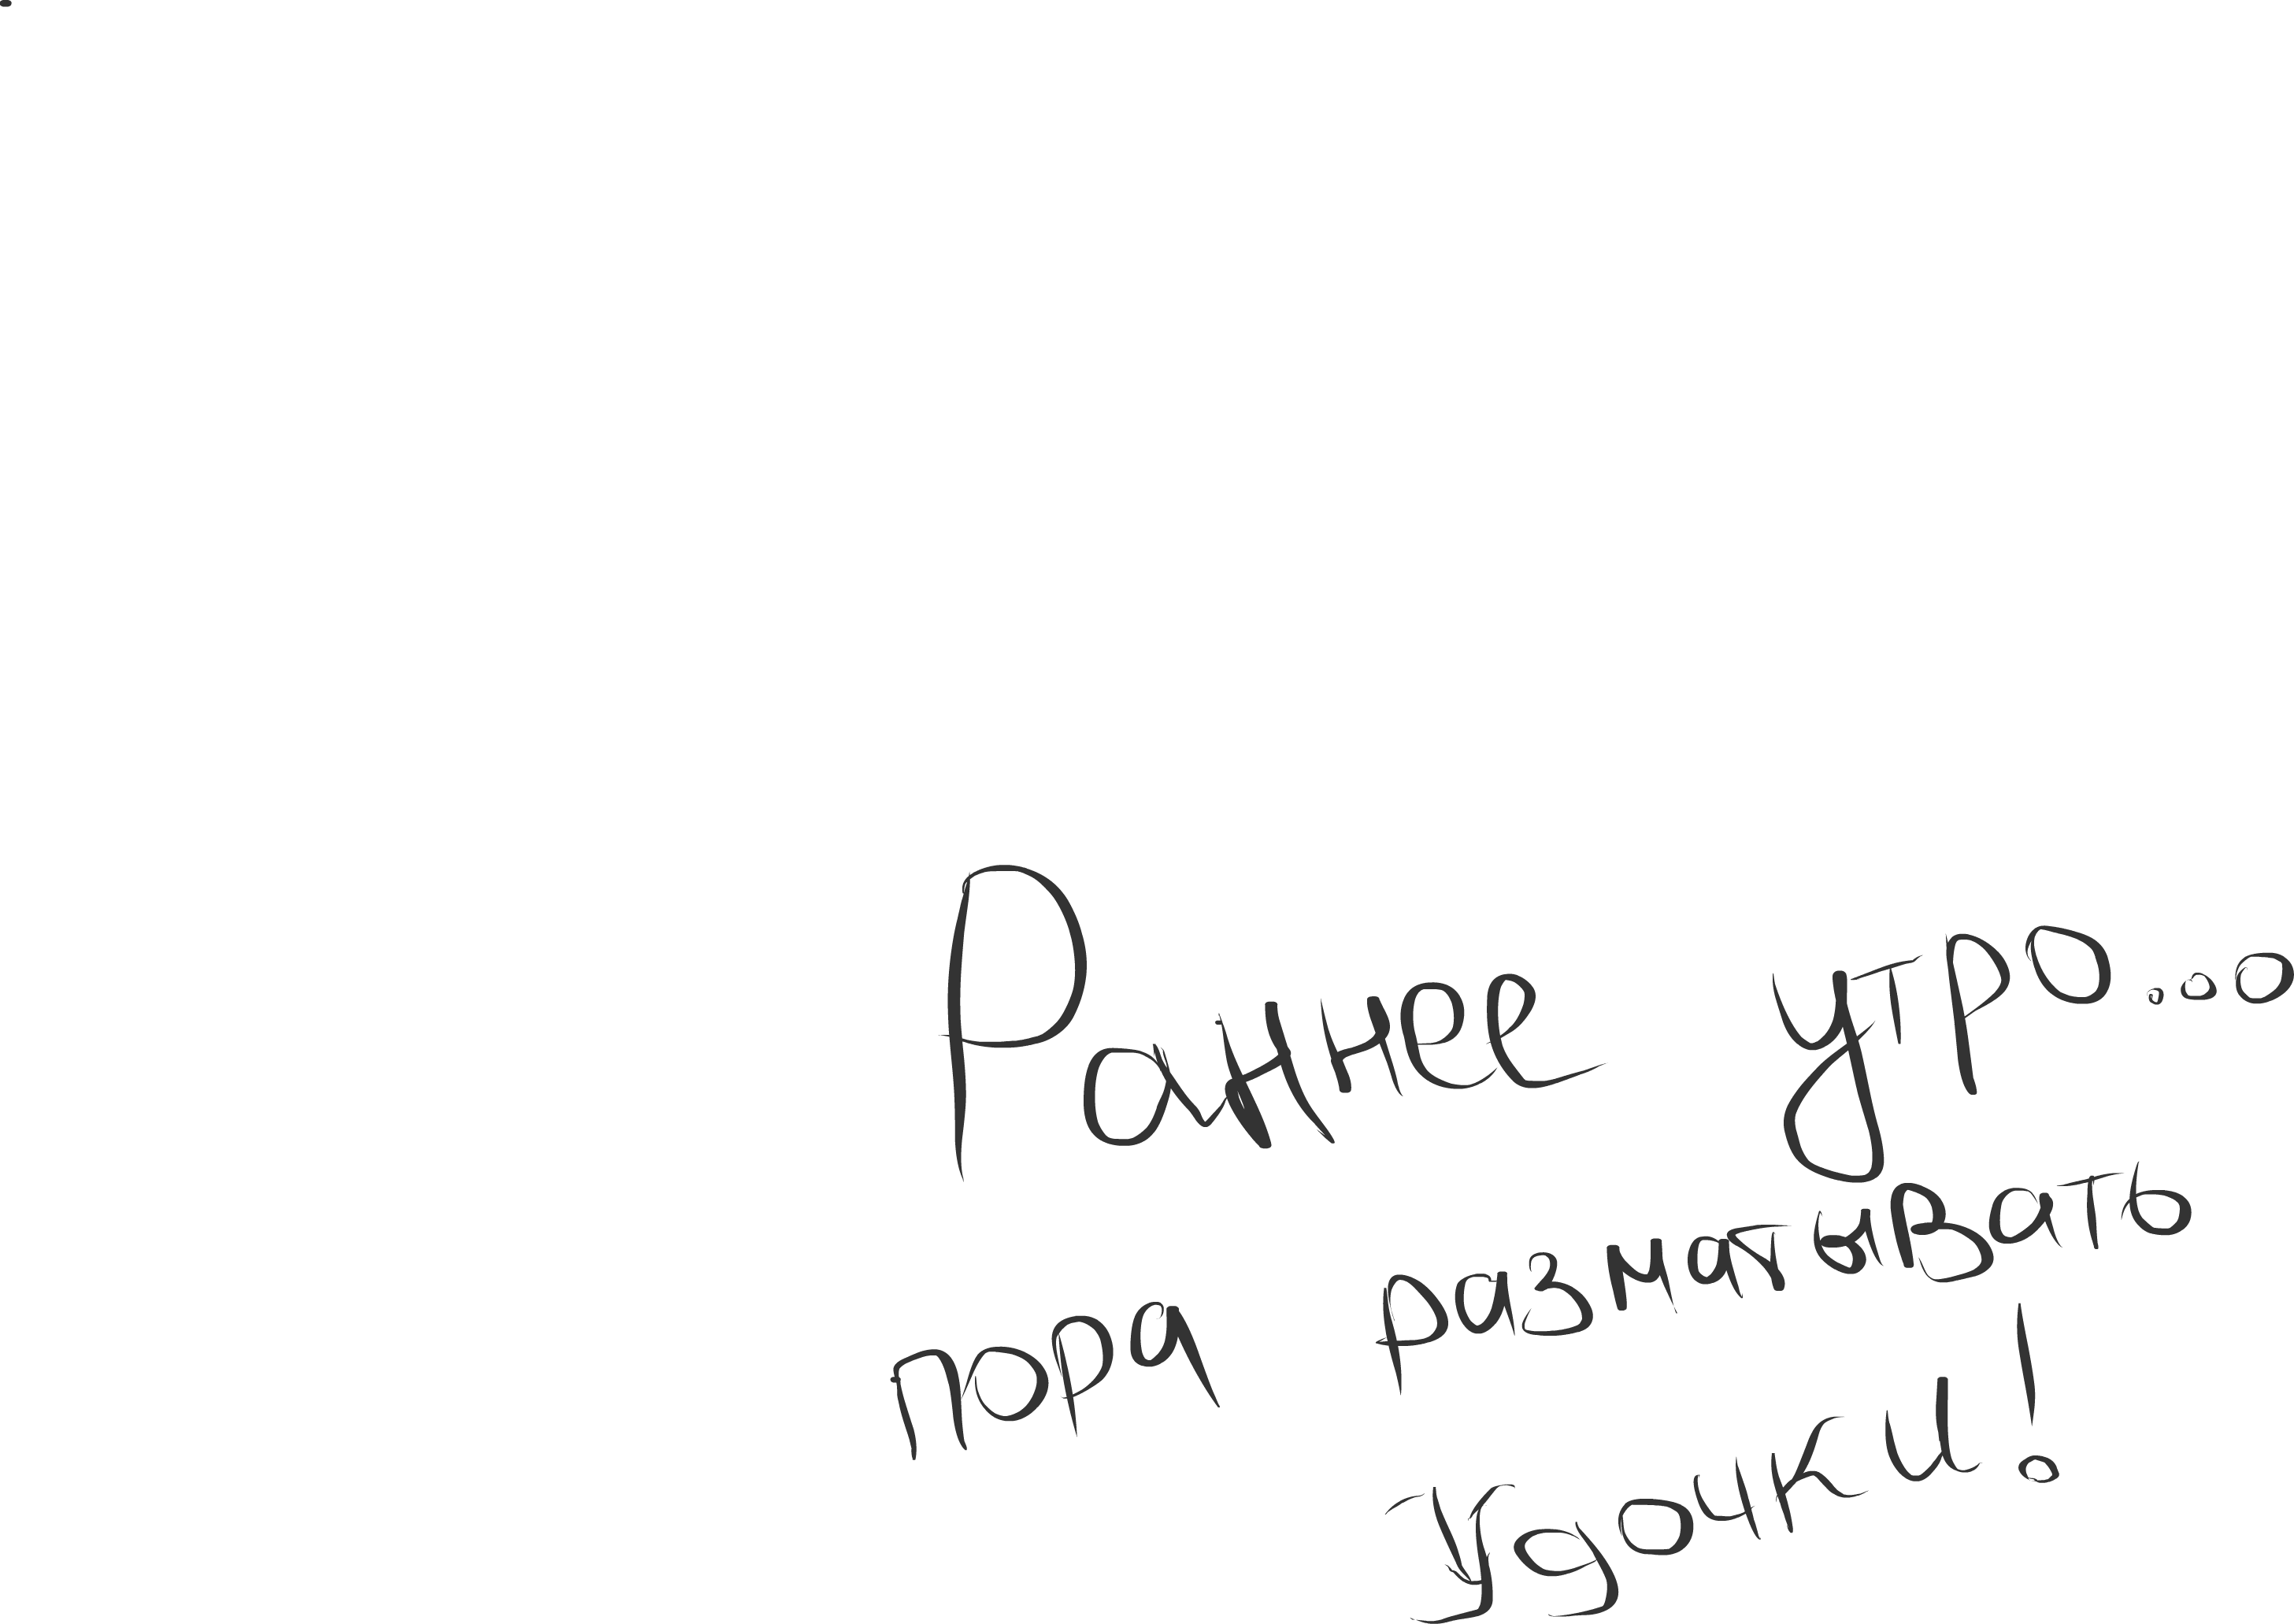 Раннее утро...
пора разматывать
Удочки!